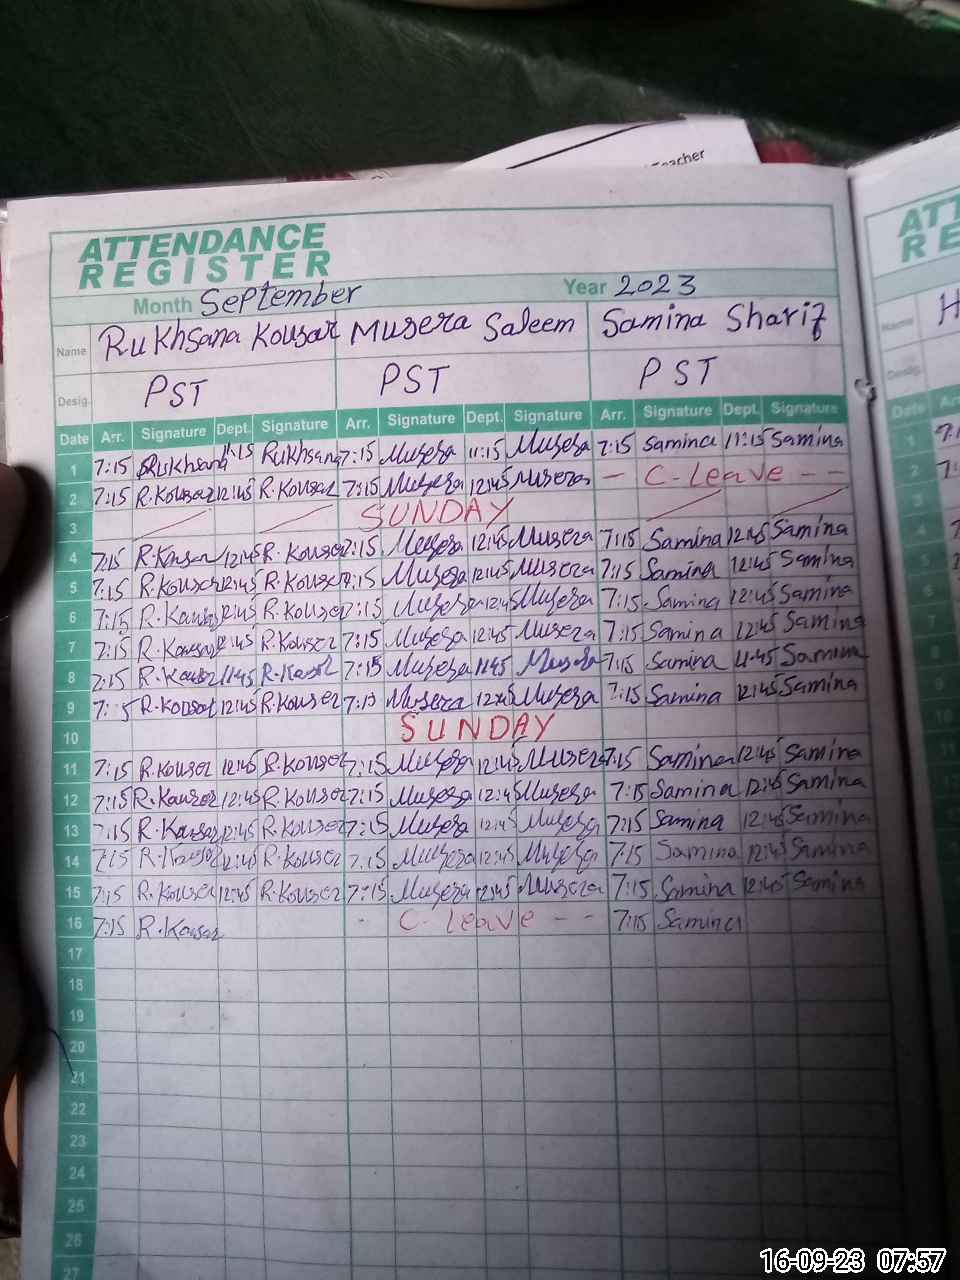 Teacher
ATTENDANCE
REGISTER
Month September Year 2023
Name Rukhsana Kousar Musera Saleem Samina Sharif
Desig. PST PST PST
Date Arr. Signature Dept. Signature Arr. Signature Dept. Signature Arr. Signature Dept. Signature
1 7:15 Rukhsana 11:15 Rukhsana 7:15 Musera 11:15 Musera 7:15 Samina 11:15 Samina
2 7:15 R.Kousar 12:45 R.Kousar 7:15 Musera 12:45 Musera - C-Leave - -
3 SUNDAY
4 7:15 R.Kousar 12:45 R.Kouser 7:15 Musera 12:45 Musera 7:15 Samina 12:45 Samina
5 7:15 R.Kouser 12:45 R.Kouser 7:15 Musera 12:45 Musera 7:15 Samina 12:45 Samina
6 7:15 R.Kousar 12:45 R.Kouser 7:15 Musera 12:45 Musera 7:15 Samina 12:45 Samina
7 7:15 R.Kousar 12:45 R.Kouser 7:15 Musera 12:45 Musera 7:15 Samina 12:45 Samina
8 7:15 R.Kouser 11:45 R.Kousr 7:15 Musera 11:45 Musera 7:15 Samina 11:45 Samina
9 7:15 R.Kousar 12:45 R.Kouser 7:15 Musera 12:45 Musera 7:15 Samina 12:45 Samina
10 SUNDAY
11 7:15 R.Kouser 12:45 R.Kouser 7:15 Musera 12:45 Musera 7:15 Samina 12:45 Samina
12 7:15 R.Kauser 12:45 R.Kouser 7:15 Musera 12:45 Musera 7:15 Samina 12:45 Samina
13 7:15 R.Kauser 12:45 R.Kouser 7:15 Musera 12:45 Musera 7:15 Samina 12:45 Samina
14 7:15 R.Kousar 12:45 R.Kouser 7:15 Musera 12:45 Musera 7:15 Samina 12:45 Samina
15 7:15 R.Kouser 12:45 R.Kouser 7:15 Musera 12:45 Musera 7:15 Samina 12:45 Samina
16 7:15 R.Kousar - C-Leave - - 7:15 Samina
17
18
19
20
21
22
23
24
25
26
27
16-09-23 07:57